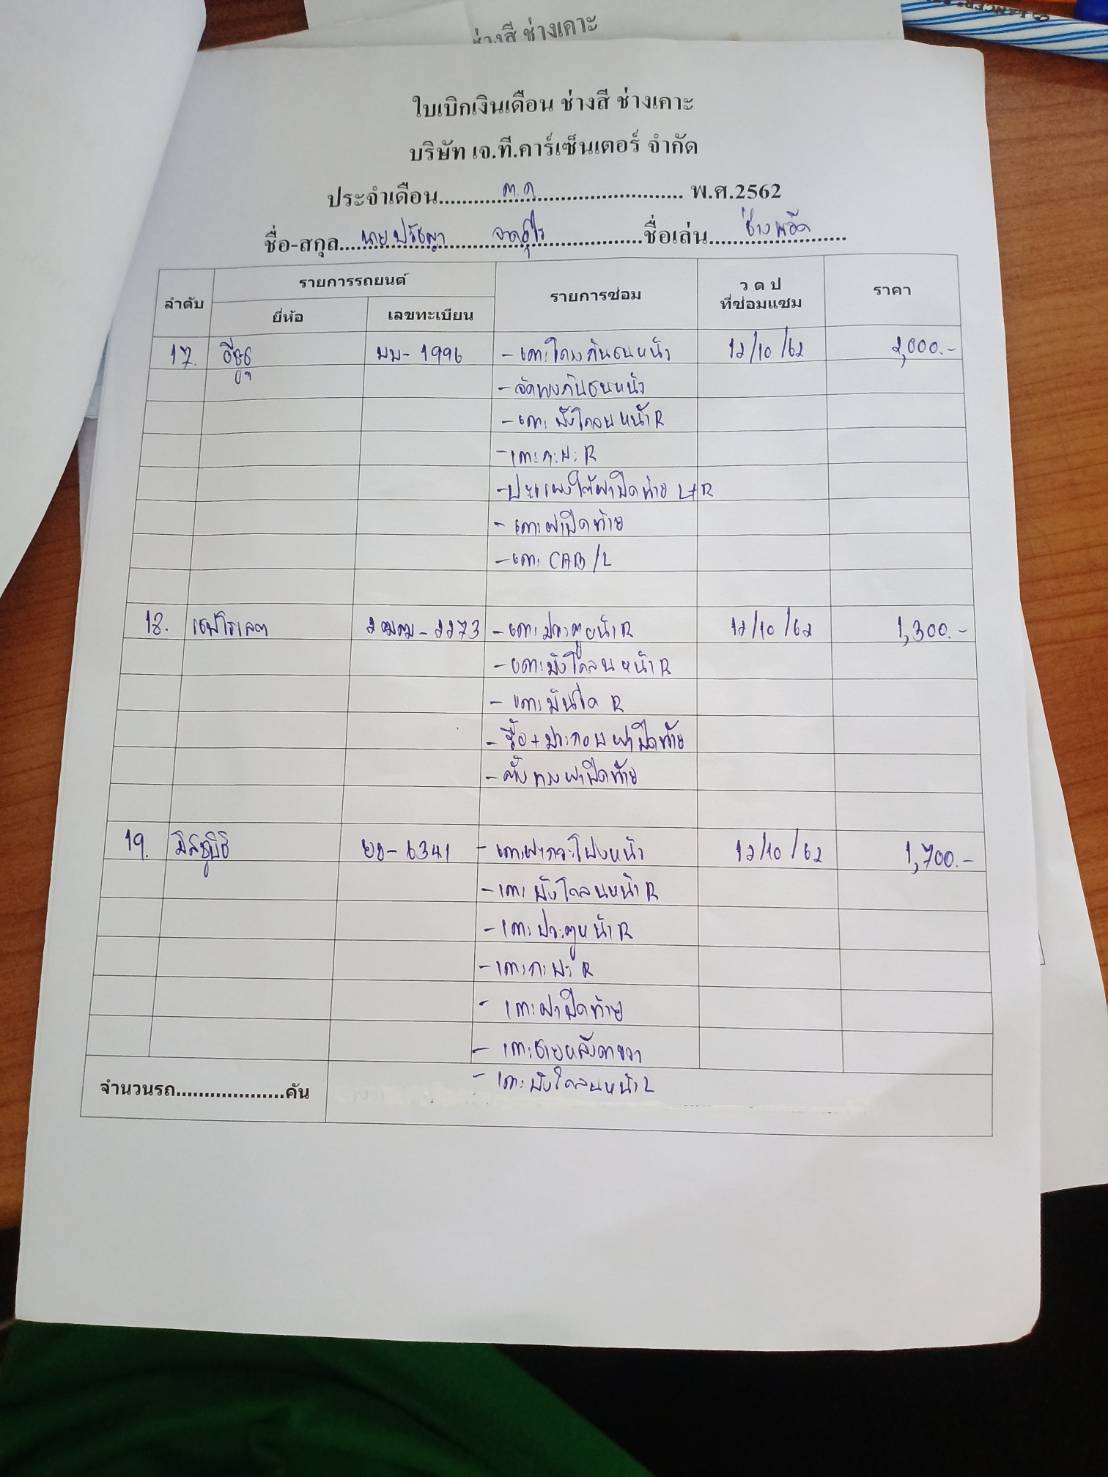 ช่างสี ช่างเคาะ
ใบเบิกเงินเดือน ช่างสี ช่างเคาะ
บริษัท เจ.ที.คาร์เซ็นเตอร์ จำกัด
ประจำเดือน ต.ค พ.ศ.2562
ชื่อ-สกุล นายปรัชญา ชื่อเล่น ช่าง
ลำดับ รายการรถยนต์ รายการซ่อม ว ด ป ที่ซ่อมแซม ราคา
ยี่ห้อ เลขทะเบียน
17. อีซูซุ มม-1996 -เคาะโครงกันชนหน้า 12/10/62 2,000.-
-จัดทรงกันชนหน้า
-เคาะ บังโคลนหน้า R
-เคาะกะบะ R
-ปะแผงใต้ฝาปิดท้าย L+R
-เคาะฝาปิดท้าย
-เคาะ CAB/L
18. เชฟโรเลต 2ฒฒ-2273 -เคาะประตูหน้า R 12/10/62 1,300.-
-เคาะบังโคลนหน้า R
-เคาะบันใด R
-รื้อ+ประกอบฝาปิดท้าย
-ตั้งทรงฝาปิดท้าย
19. มิตซูบิชิ -6341 -เคาะฝากระโปงหน้า 12/10/62 1,700.-
-เคาะบังโคลนหน้า R
-เคาะประตูหน้า R
-เคาะกะบะ R
-เคาะฝาปิดท้าย
-เคาะชายหลังคาขวา
-เคาะบังโคลนหน้า L
จำนวนรถ....................คัน